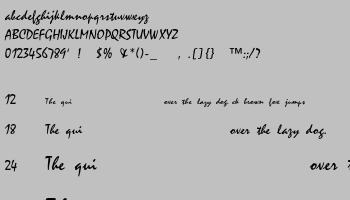 abcdefghijklmnopqrstuvwxyz
ABCDEFGHIJKLMNOPQRSTUVWXYZ
0123456789' ! $% &*()-_ , .[]{} ™:;/?
12 The qui over the lazy dog ck brown fox jumps
18 The qui over the lazy dog.
24 The qui over